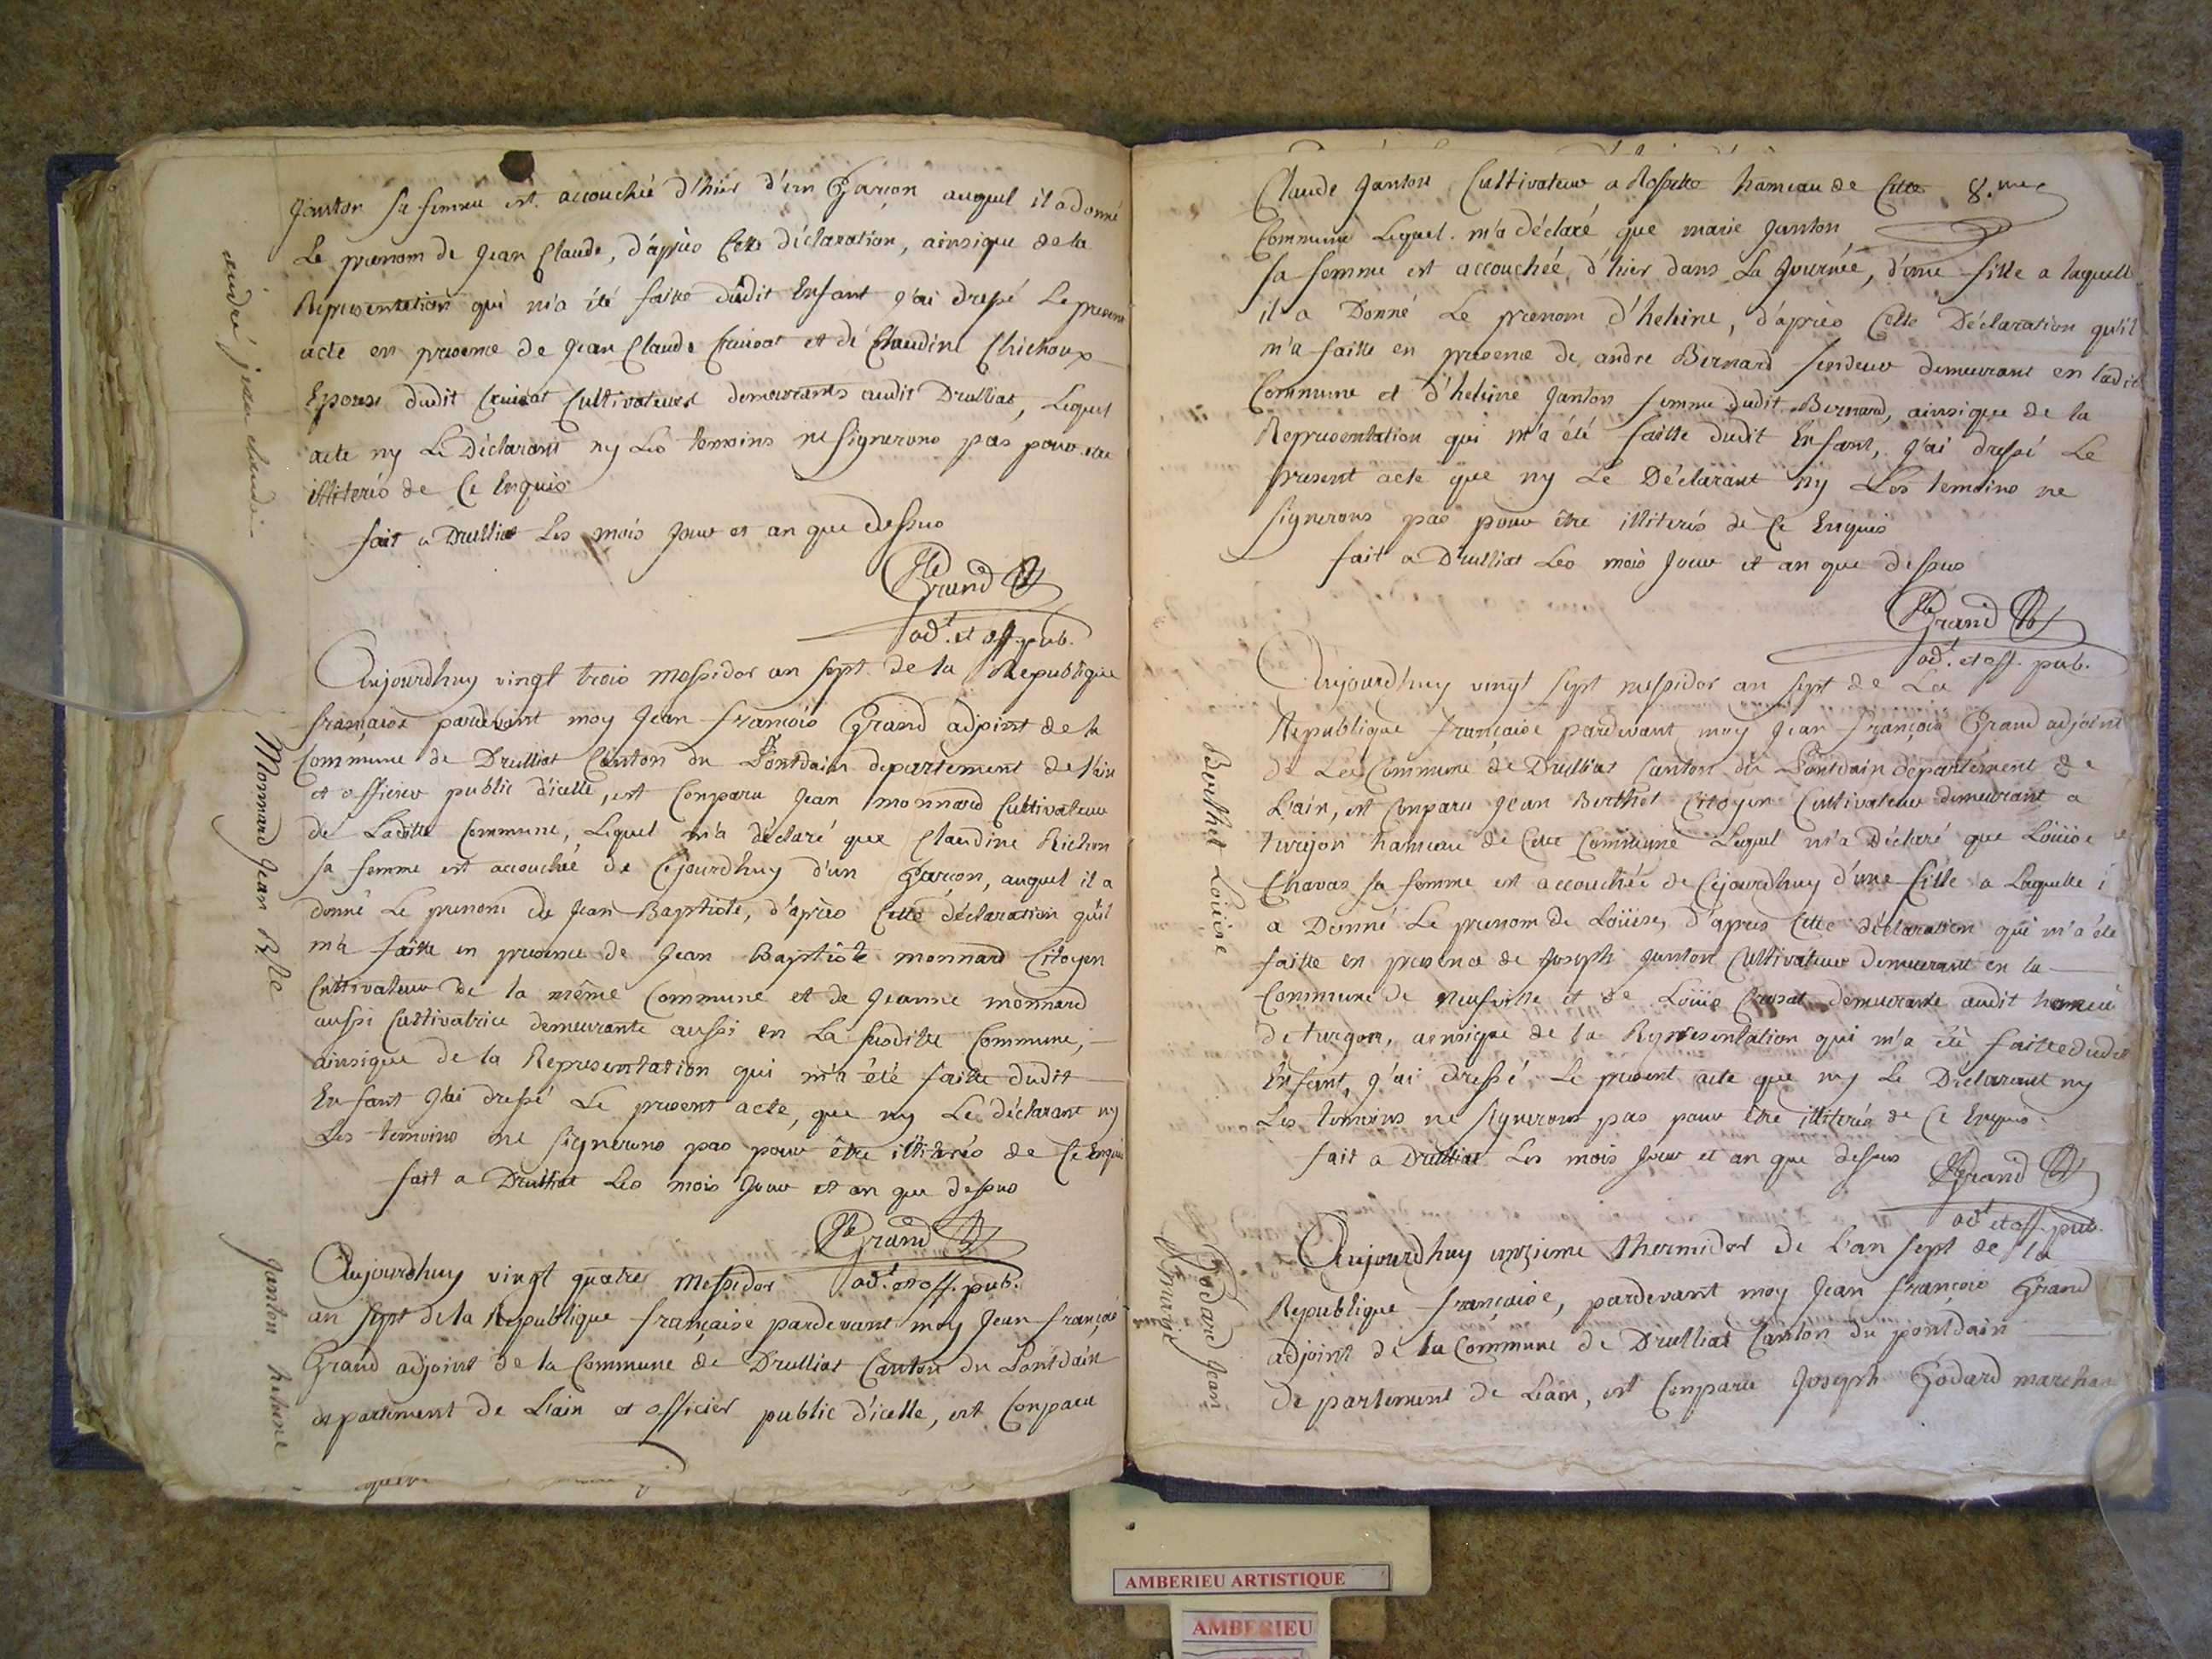 janton sa femme est accouchée d'hier d'un Garçon auquel il a donné
Le prenom de jean Claude, d'après Cette déclaration, ainsique de la
Representation qui m'a été faitte dudit Enfant j'ai dressé Le present
acte en presence de jean Claude Cruisat et de Claudine Chichoux
Epouse dudit Cruisat Cultivateurs demeurants audit Drulliat, Lequel
acte ny Le Déclarant ny Les temoins ne signerons pas pour etre
illiterés de Ce Enquis
fait a Drulliat Les mois jour et an que dessus
Grand
adt. et off. pub.
jean claude
Aujourdhuy vingt trois Messidor an sept de la Republique
française pardevant moy Jean François Grand adjoint de la
Commune de Drulliat Canton du Pontdain departement de l'ain
et officier public d'icelle, est Comparu Jean monnard Cultivateur
de Laditte Commune, Lequel m'a déclaré que Claudine Richon
sa femme est accouchée de Cejourdhuy d'un Garcon, auquel il a
donné Le prenom de Jean Baptiste, d'après Cette déclaration qu'il
m'a faitte en presence de Jean Baptiste monnard Citoyen
Cultivateur de la même Commune et de Jeanne monnard
aussi Cultivatrice demeurante aussi en La susditte Commune,
ainsique de la Representation qui m'a été faitte dudit
Enfant J'ai dressé Le present acte, que ny Le déclarant ny
Les temoins ne signerons pas pour être illiterés de Ce Enquis
fait a Drulliat Les mois Jour et an que dessus
Grand
adt. et off. pub.
Monnard Jean Bste
Aujourdhuy vingt quatre Messidor
an sept de la Republique française pardevant moy Jean François
Grand adjoint de la Commune de Drulliat Canton du Pontdain
departement de L'ain et officier public d'icelle, est Comparu
janton heleine
Claude Janton Cultivateur a Rossette hameau de Cette 8.me
Commune Lequel m'a déclaré que marie Janton
sa femme est accouchée d'hier dans La Journée, d'une fille a laquelle
il a Donné Le prenom d'heleine, d'après Cette Déclaration qu'il
m'a faitte en presence de andre Bernard fendeur demeurant en ladit
Commune et d'heleine Janton femme dudit Bernard, ainsique de la
Representation qui m'a été faitte dudit Enfant, J'ai dressé Le
present acte que ny Le Déclarant ny Les temoins ne
signerons pas pour être illiterés de Ce Enquis
fait a Drulliat Les mois Jour et an que dessus
Grand
adt. et off. pub.
Aujourdhuy vingt sept messidor an sept de La
Republique française pardevant moy Jean François Grand adjoint
de La Commune de Drulliat Canton du Pontdain département de
L'ain, est Comparu Jean Berthet Citoyen Cultivateur demeurant a
turgon hameau de Cette Commune Lequel m'a Déclaré que Loüise
Chavas sa femme est accouchée de Cejourdhuy d'une fille a Laquelle i
a Donné Le prenom de Loüise, d'apres Cette déclaration qui m'a été
faitte en presence de Joseph Janton Cultivateur demeurant en la
Commune de Neufville et de Loüise demeurante audit hameau
de turgon, ainsique de la Representation qui m'a été faitte dudit
Enfant, J'ai dressé Le present acte que ny Le Declarant ny
Les temoins ne signerons pas pour être illiterés de Ce Enquis
fait a Drulliat Les mois Jour et an que dessus
Grand
adt et off. pub.
Berthet Loüise
Aujourdhuy onzieme thermidor de L'an sept de la
Republique française, pardevant moy Jean François Grand
adjoint de la Commune de Drulliat Canton du pontdain
departement de L'ain, est Comparu Joseph Godard marchan
Godard Jean
AMBERIEU ARTISTIQUE
AMBERIEU